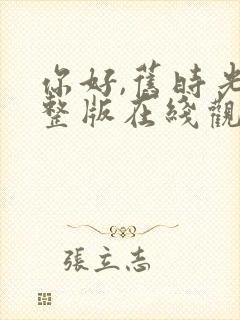 你好,舊時光
整版在綫觀
張立志